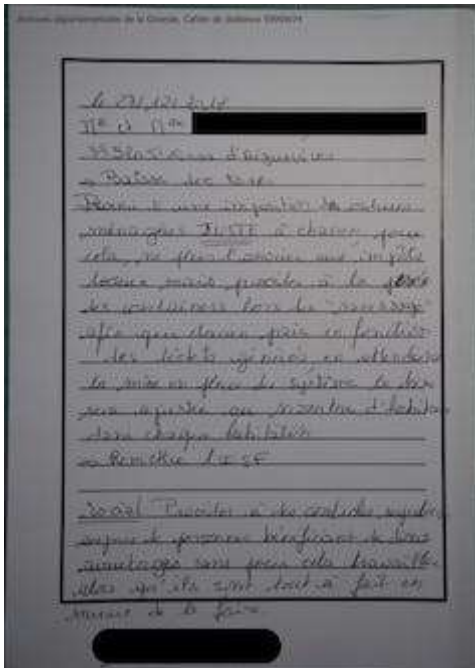 Archives départementales de la Gironde, Cahier de doléances
le 27/12/2018
Mr et Mme
d'Aiguevives
→ Baisse des taxes
Passer à une imposition des ordures
ménagères JUSTE à chacun, pour
cela, ne plus l'associer aux impôts
locaux mais procéder à la pesée
des containers lors du "ramassage"
afin que chacun paie en fonction
des déchets générés, en attendant
la mise en place du système la taxe
sera ajustée au nombre d'habitants
dans chaque habitation
→ Remettre l'ISF
Social Procéder à des contrôles
auprès de personnes bénéficiant de divers
avantages sans pour cela travailler
alors qu'ils sont tout à fait en
mesure de le faire.